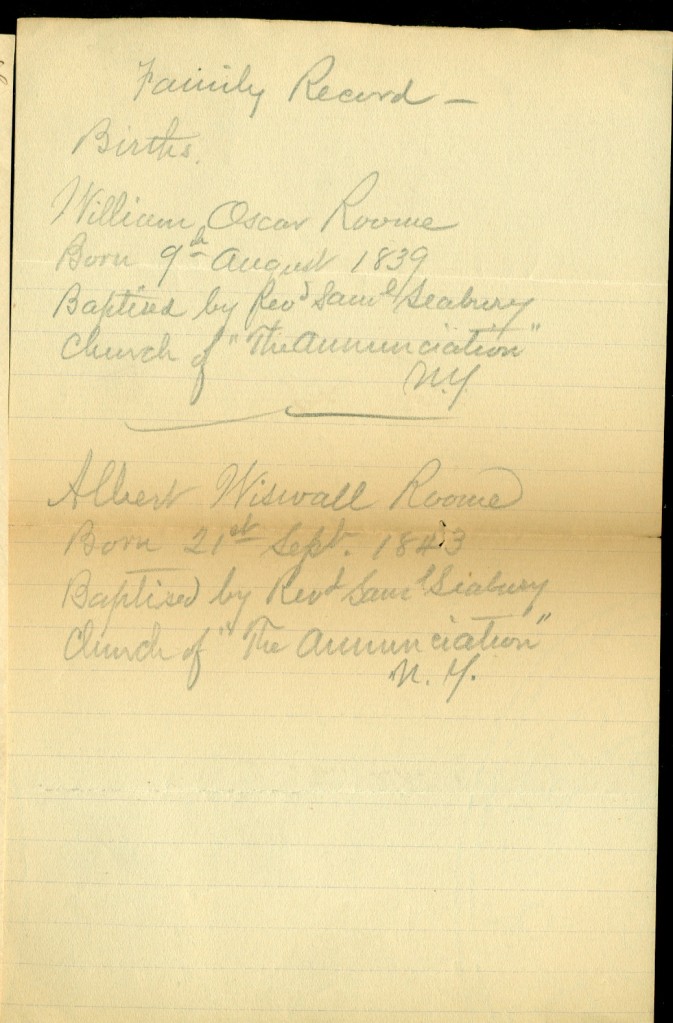 Family Record —
Births.
William Oscar Roome
Born 9th August 1839
Baptised by Revd Saml Seabury
Church of "The Annunciation"
N.Y.
Albert Wiswall Roome
Born 21st Sept. 1843
Baptised by Revd Saml Seabury
Church of "The Annunciation"
N.Y.